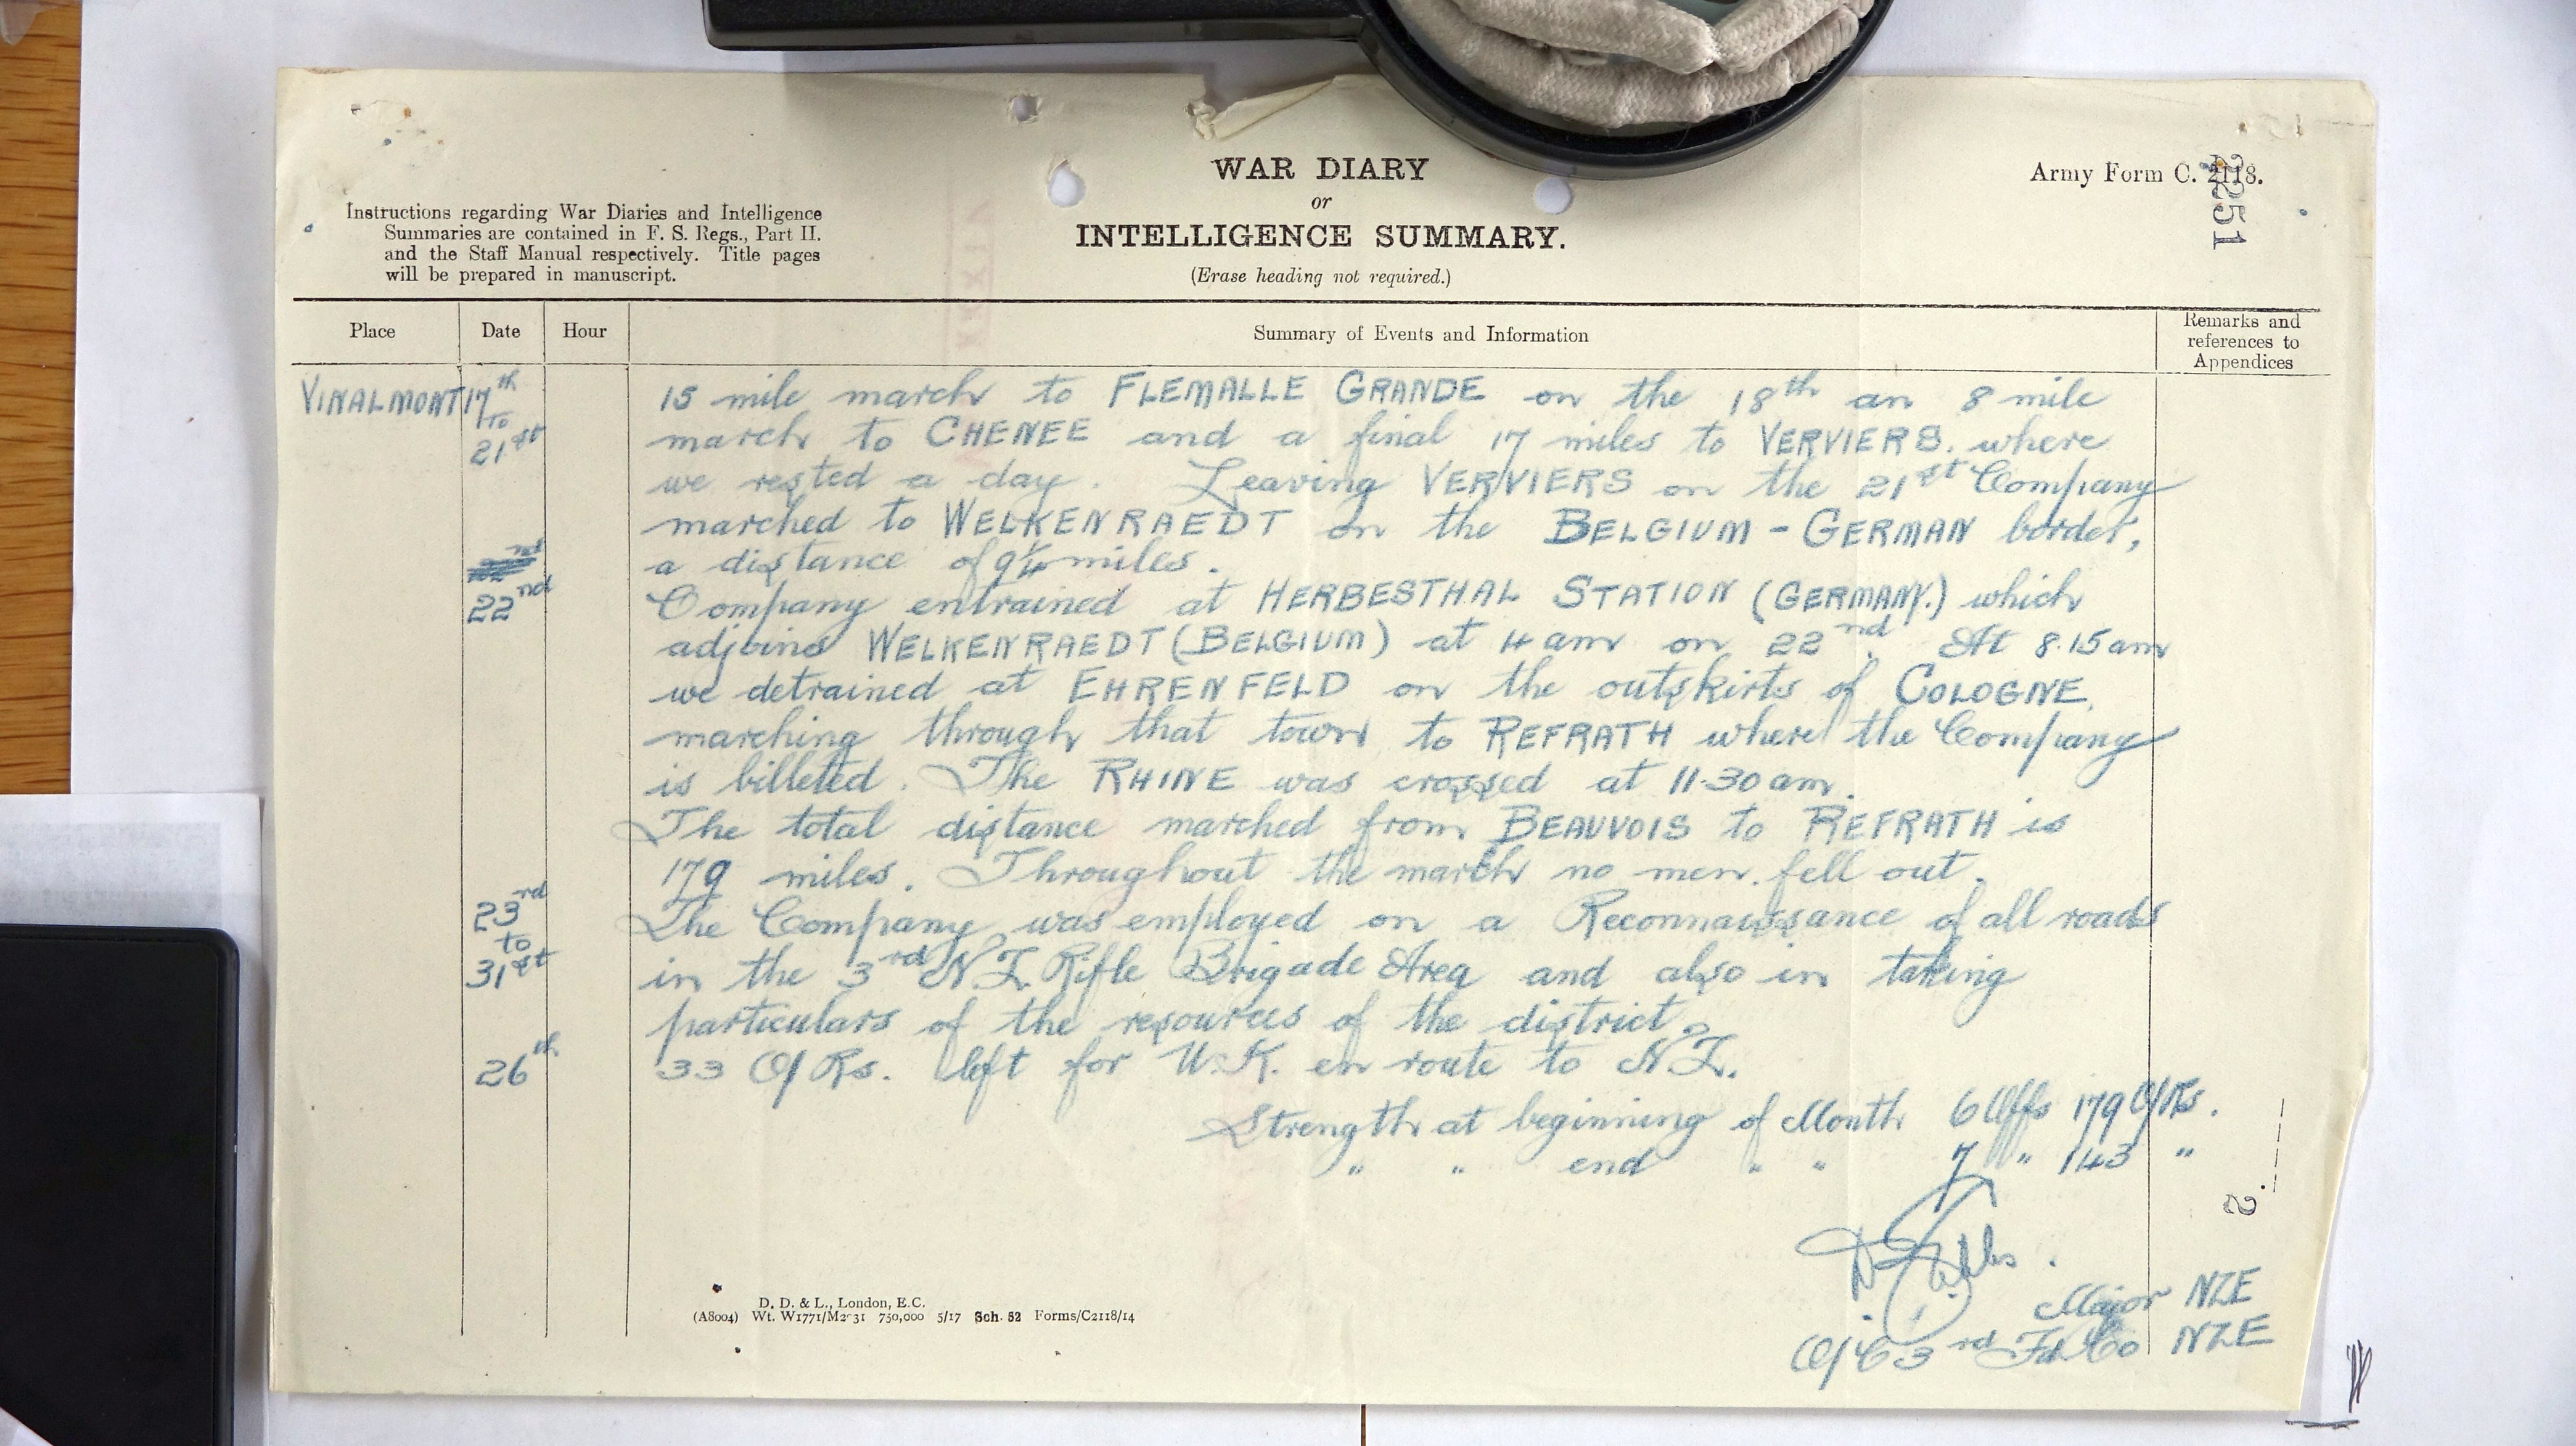 WAR DIARY
or
INTELLIGENCE SUMMARY.
(Erase heading not required.)
Army Form C. 2118.
3251
Instructions regarding War Diaries and Intelligence
Summaries are contained in F. S. Regs., Part II.
and the Staff Manual respectively. Title pages
will be prepared in manuscript.
Place Date Hour Summary of Events and Information Remarks and references to Appendices
VINALMONT 17th 15 mile march to FLEMALLE GRANDE on the 18th an 8 mile
to
21st march to CHENEE and a final 17 miles to VERVIERS. where
we rested a day. Leaving VERVIERS on the 21st Company
marched to WELKENRAEDT on the BELGIUM - GERMAN border,
a distance of 9¼ miles.
22nd Company entrained at HERBESTHAL STATION (GERMANY.) which
adjoins WELKENRAEDT (BELGIUM) at 4 am on 22nd. At 8.15 am
we detrained at EHRENFELD on the outskirts of COLOGNE,
marching through that town to REFRATH where the Company
is billeted. The RHINE was crossed at 11.30 am.
The total distance marched from BEAUVOIS to REFRATH is
179 miles. Throughout the march no men fell out.
23rd The Company was employed on a Reconnaissance of all roads
to
31st in the 3rd N.Z. Rifle Brigade Area and also in taking
particulars of the resources of the district.
26th 33 O/Rs. left for U.K. en route to N.Z.
Strength at beginning of Month 6 Offs 179 O/Rs.
" " end " " 7 " 143 "
2.
Major NZE
O/C 3rd Fd. Co NZE
D. D. & L., London, E.C.
(A8004) Wt. W1771/M2031 750,000 5/17 Sch. 52 Forms/C2118/14